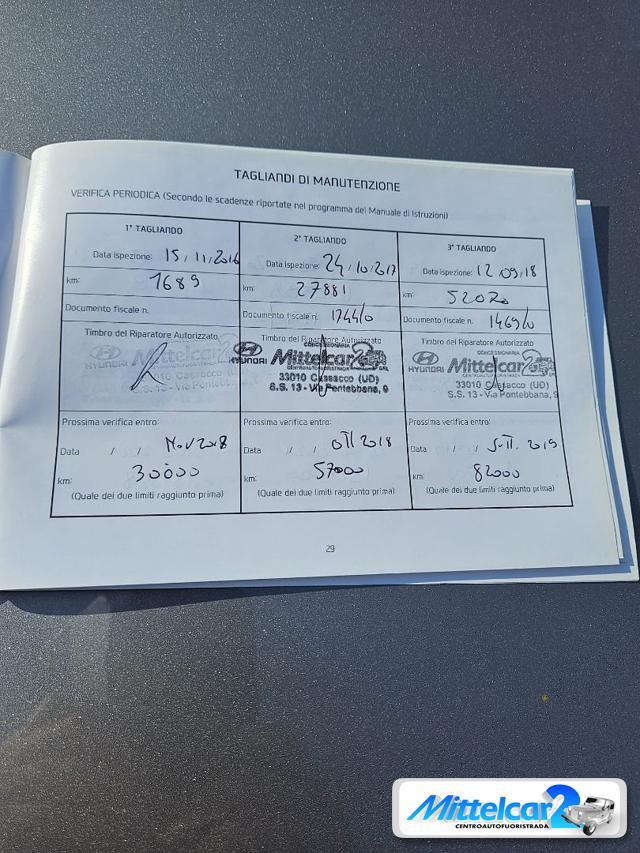 TAGLIANDI DI MANUTENZIONE
VERIFICA PERIODICA (Secondo le scadenze riportate nel programma del Manuale di Istruzioni)
1° TAGLIANDO
Data ispezione: 15/11/2016
km: 1689
Documento fiscale n.
Timbro del Riparatore Autorizzato
HYUNDAI Mittelcar2
Cassacco (UD)
S.S. 13 - Via Pontebbana, 9
Prossima verifica entro:
Data / / Nov 2018
km: 30000
(Quale dei due limiti raggiunto prima)
2° TAGLIANDO
Data ispezione: 24/10/2017
km: 27881
Documento fiscale n. 1744/0
Timbro del Riparatore Autorizzato
CONCESSIONARIA
HYUNDAI Mittelcar2 SRL
CENTROAUTOFUORISTRADA
33010 Cassacco (UD)
S.S. 13 - Via Pontebbana, 9
Prossima verifica entro:
Data / / OTT 2018
km: 57000
(Quale dei due limiti raggiunto prima)
3° TAGLIANDO
Data ispezione: 12/09/18
km: 52020
Documento fiscale n. 1469/0
Timbro del Riparatore Autorizzato
CONCESSIONARIA
HYUNDAI Mittelcar2
CENTROAUTOFUORISTRADA
33010 Cassacco (UD)
S.S. 13 - Via Pontebbana, 9
Prossima verifica entro:
Data / / 2019
km: 82000
(Quale dei due limiti raggiunto prima)
29
Mittelcar2
CENTROAUTOFUORISTRADA